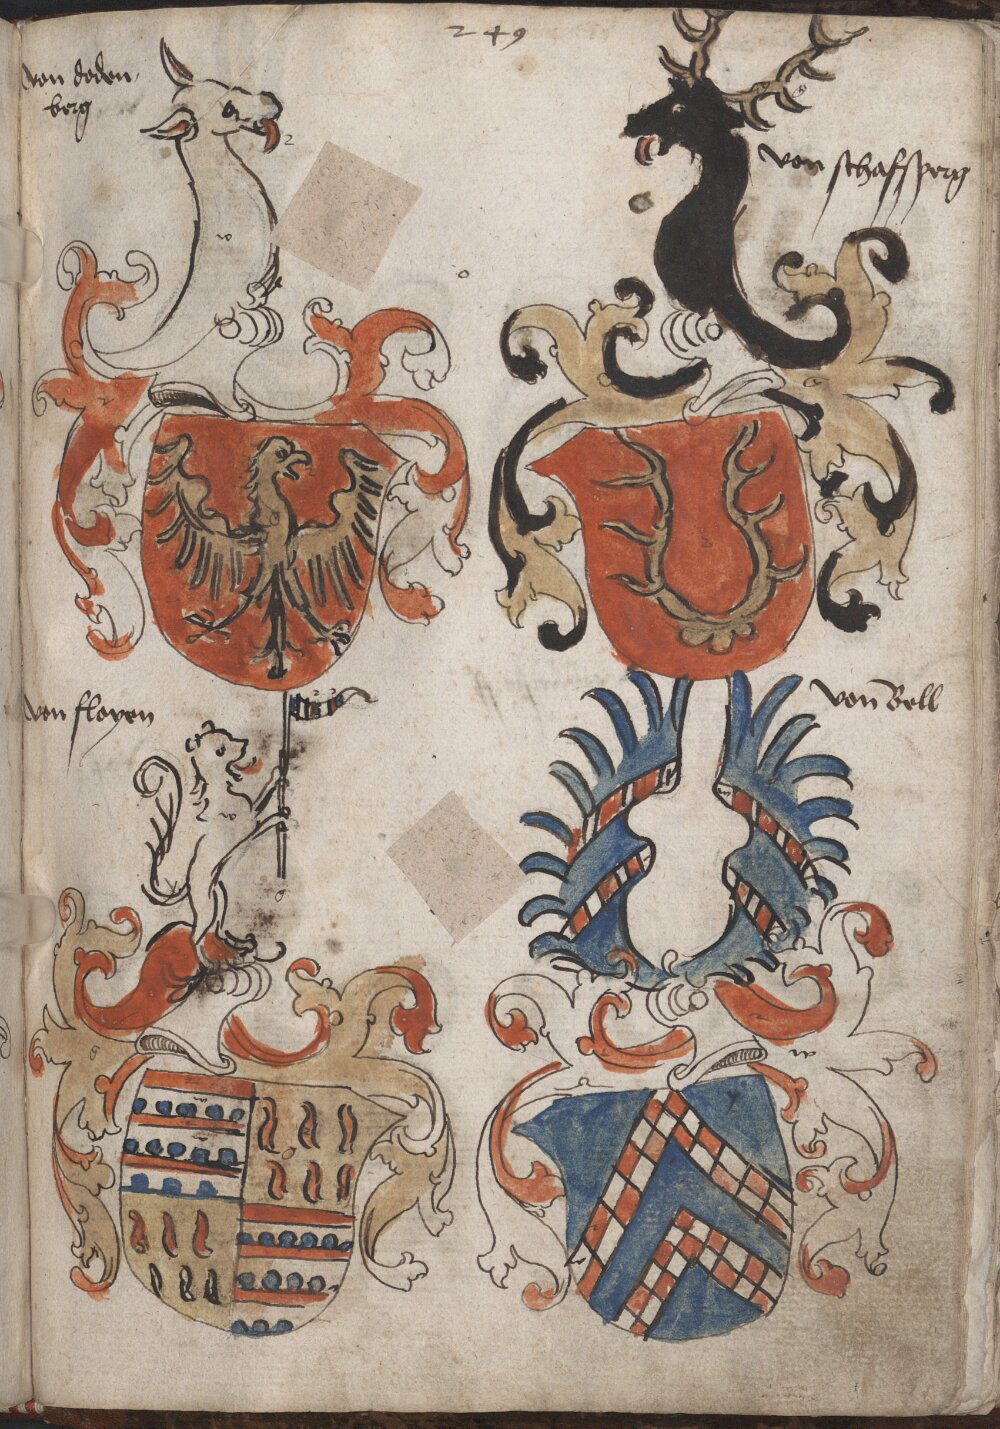 249
von doden-
berg
von schaffsperg
von floyen
von Bell